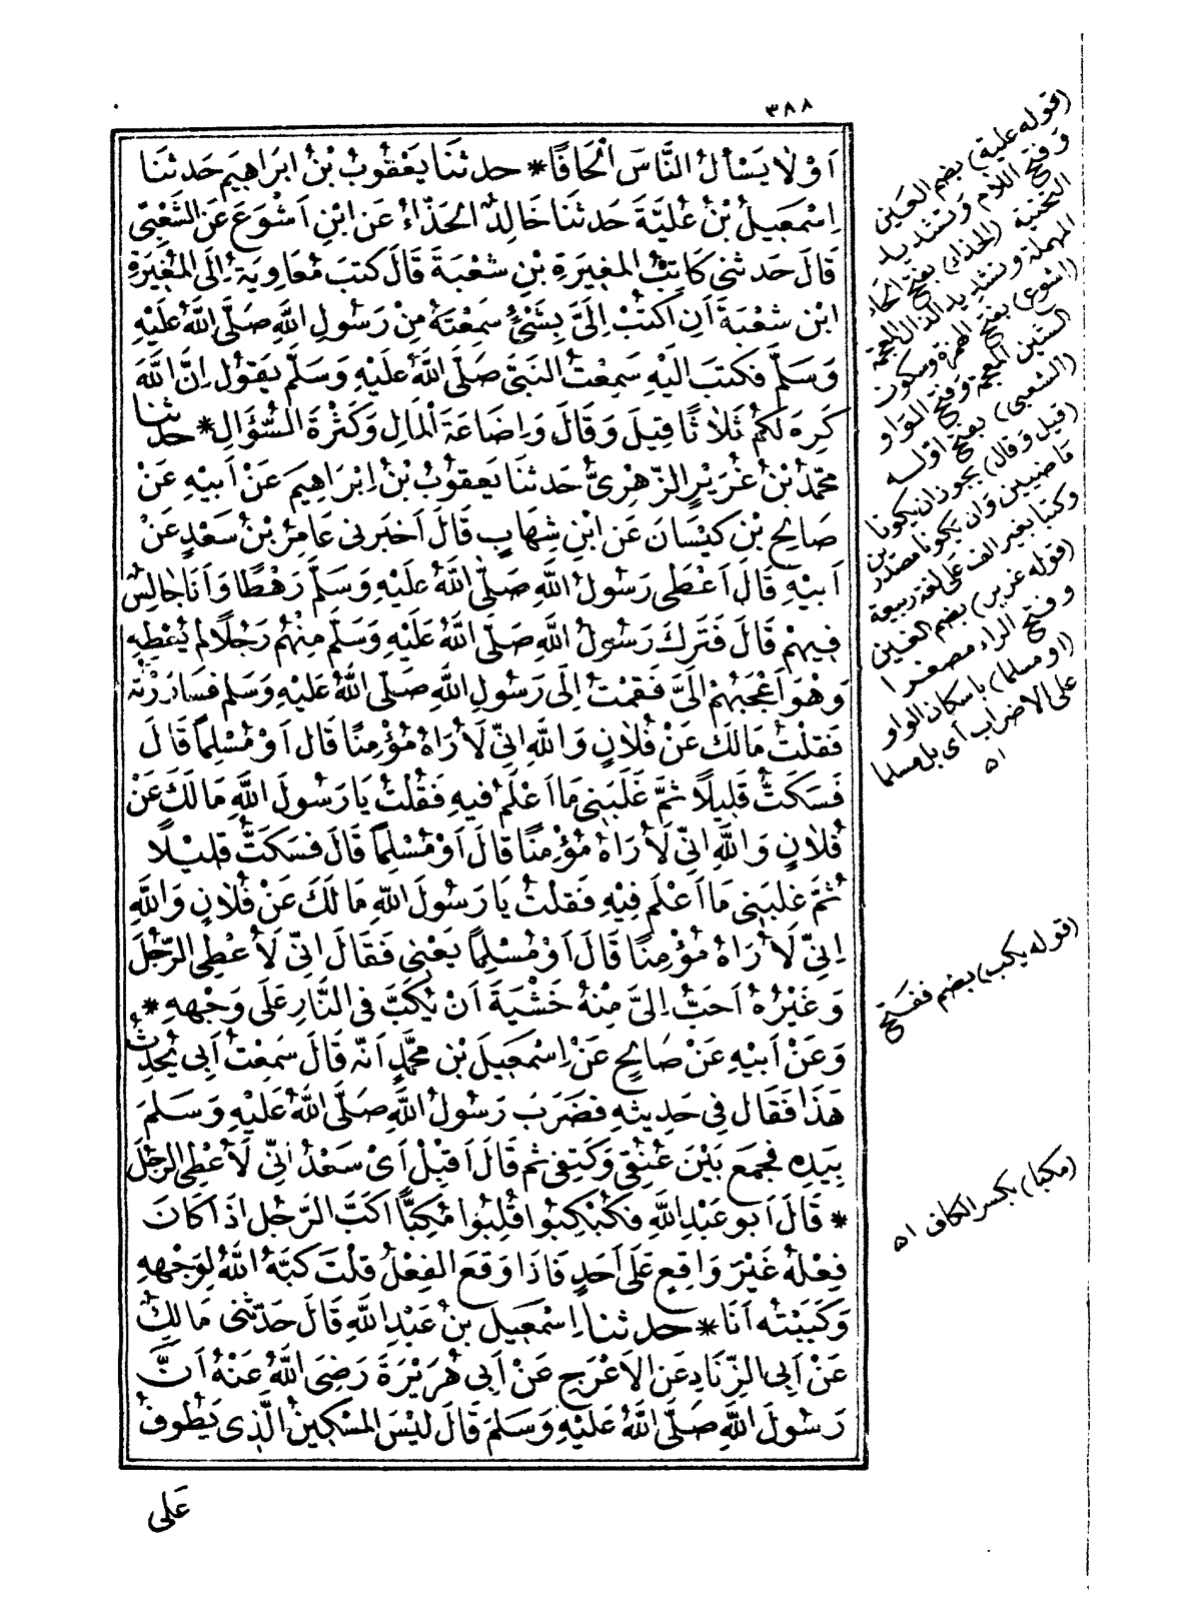 ٣٨٨
اَوْ لَا يَسْأَلُ النَّاسَ اِلْحَافًا * حدثنَا يَعْقُوبُ بْنُ ابرَاهِيمَ حَدثنَا
اِسْمعِيلُ بْنُ عُليَّةَ حَدثنَا خَالِدٌ الحَذَّاءُ عَن ابْنِ اَشْوَعَ عَن الشَّعْبِىّ
قَالَ حَدثنى كَاتِبُ المغِيرَةِ بْنِ شعْبَةَ قَالَ كَتبَ مُعَاوِيَةُ اِلَى المُغِيَرةِ
ابْنِ شعْبَةَ اَنِ اكْتُبْ اِلَىَّ بِشَىْءٍ سَمِعْتَهُ مِنْ رَسُولِ اللّٰهِ صَلَّى اللّٰهُ عَلَيْهِ
وَسَلمَّ فَكتبَ اليْهِ سَمِعْتُ النبَىَّ صَلَّى اللّٰهُ عَليْهِ وَسَلمَّ يَقوُلُ اِنَّ اللّٰهَ
كَرِهَ لَكُمْ ثَلاثًا قِيلَ وَقَالَ وَاِضَاعَةَ الْمَالِ وَكَثْرَةَ السُّؤَالِ * حدثنا
محَّمدُ بْنُ غُرَيْرٍ الزّهْرِىُّ حَدثنَا يَعقوُبُ بْنُ اِبْرَاهِيمَ عَنْ اَبيْهِ عَنْ
صَالِحِ بْنِ كَيْسَانَ عَن ابْنِ شِهَابٍ قَالَ اَخبَرنى عَامِرُ بْنُ سَعْدٍ عَنْ
اَبيْهِ قَالَ اَعْطَى رَسُولُ اللّٰهِ صَلّى اللّٰهُ عَلَيْهِ وَسَلمَّ رَهْطًا وَاَنَا جَالِسٌ
فيهِمْ قَالَ فَترَكَ رَسُولُ اللّٰهِ صَلّى اللّٰهُ عَلَيْهِ وَسَلّمَ مِنْهُمْ رَجُلًا لم يُعْطِهِ
وَهْوَ اَعْجَبُهُمْ اِلَىَّ فَقمْتُ اِلَى رَسُولِ اللّٰهِ صَلّى اللّٰهُ عَليْهِ وَسَلم فسَارَرْتُه
فَقلتُ مَا لَكَ عَنْ فُلَانٍ وَاللّٰهِ اِنىّ لَاُرَاهُ مُؤْمِنًا قَال اَوْ مُسْلِمًا قَالَ
فَسَكَتُّ قَليلًا ثمَّ غَلَبَنى مَا اَعْلَمُ فيهِ فَقُلْتُ يَا رَسُولَ اللّٰهِ مَا لَكَ عَنْ
فُلَانٍ وَاللّٰهِ اِنىّ لَاُرَاهُ مُؤْمِنًا قَالَ اَوْ مُسْلِمًا قَالَ فسَكَتُّ قليْلًا
ثُمَّ غلبَنى مَا اَعْلَم فِيْهِ فَقلْتُ يَا رَسُولَ اللّٰهِ مَا لَكَ عَنْ فُلَانٍ وَاللّٰهِ
اِنىّ لَاُرَاهُ مُؤْمِنًا قَالَ اَوْ مُسْلِمًا يَعْنى فَقَالَ اِنىّ لَاُعْطِى الرّجُلَ
وَغَيْرُهُ اَحَبُّ اِلىَّ مِنْهُ خَشْيَةَ اَنْ يُكَبَّ فى النَّارِ عَلَى وَجْههِ *
وَعَنْ اَبيْهِ عَنْ صَالِحٍ عَنْ اِسْمعِيلَ بْنِ محَّمدٍ اَنّه قَالَ سَمِعْتُ اَبى يُحَدِّثُ
هَذَا فَقَال فِى حَدِيثِهِ فضَرَبَ رَسُولُ اللّٰهِ صَلَّى اللّٰهُ عَليْهِ وَسَلمَ
بِيَدِهِ فجمَعَ بَيْنَ عُنقِى وَكَتِفى ثم قَالَ اَقبِلْ اَىْ سَعْدُ اِنىّ لَاُعْطِى الرجُلَ
* قَالَ اَبو عَبْدِ اللّٰهِ فكُبْكِبُوا قُلِبُوا مُكِبًّا اَكَبَّ الرَّجُل اذَا كَانَ
فِعْلُهُ غَيْرَ وَاقِعٍ عَلَى اَحَدٍ فَاذَا وَقَعَ الفِعْلُ قلْتَ كَبَّهُ اللّٰهُ لِوَجْههِ
وَكَبَبْتُه اَنَا * حدثنا اِسْمعِيلَ بنُ عَبْدِ اللّٰهِ قَالَ حَدّثنى مَالِكٌ
عَنْ اَبِى الزّنَادِ عَن الاَعْرَجِ عَنْ اَبى هُرَيْرَةَ رَضِىَ اللّٰهُ عَنْهُ اَنَّ
رَسُولَ اللّٰهِ صَلَّى اللّٰهُ عَلَيْهِ وَسَلمَ قَالَ ليْسَ المسْكِينُ الَّذِى يَطُوفُ
عَلى
(قوله علية) بضم العين
وفتح اللام وتشديد
التحتية (الحذاء) بفتح الحاء
المهملة وتشديد الذال المعجمة
(اشوع) بفتح الهمزة وسكون
الشين المعجمة وفتح الواو
(الشعبى) بفتح اوله
(قيل وقال) يجوز ان يكونا
ماضيين وان يكونا مصدرين
وكتبا بغير الف على لغة ربيعة
(قوله غرير) بضم الغين
وفتح الراء مصغرا
(او مسلما) باسكان الواو
على الاضراب اى بل مسلما
اه
(قوله يكب) بضم ففتح
(مكبا) بكسر الكاف اه